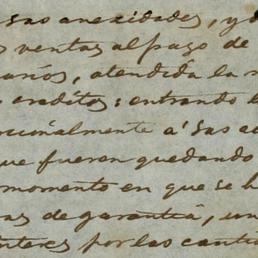 sas anexidades, y
ventas al pago de
arios, atendida la
creditos: entrando
cionalmente a' sas
que fueren quedando
momento en que se h
as de garantia, un
interes por las canti